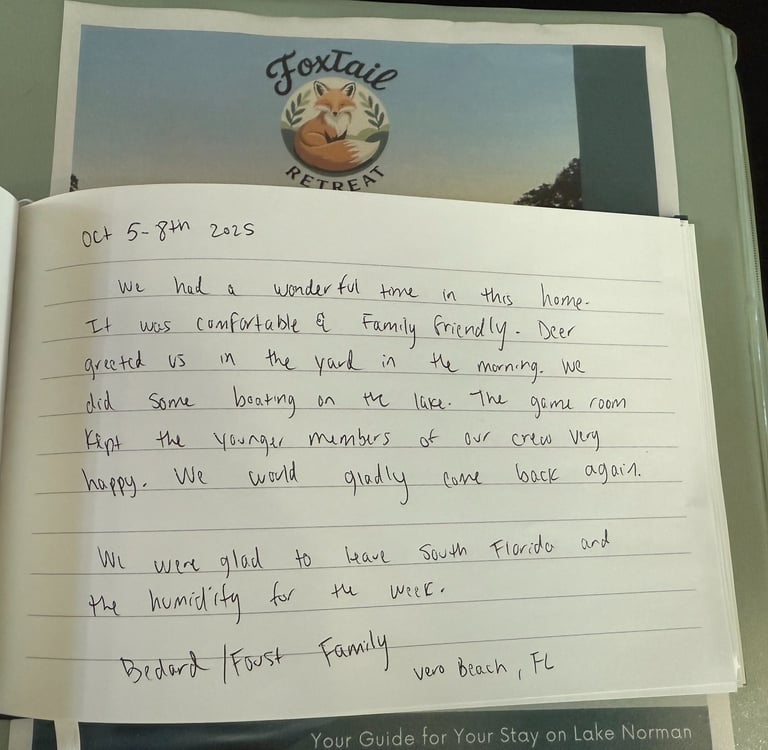 FoxTail
RETREAT
Oct 5-8th 2025
We had a wonderful time in this home.
It was comfortable & Family friendly. Deer
greeted us in the yard in the morning. We
did some boating on the lake. The game room
kept the younger members of our crew very
happy. We would gladly come back again.
We were glad to leave South Florida and
the humidity for the week.
Bedard/Foust Family
Vero Beach, FL
Your Guide for Your Stay on Lake Norman